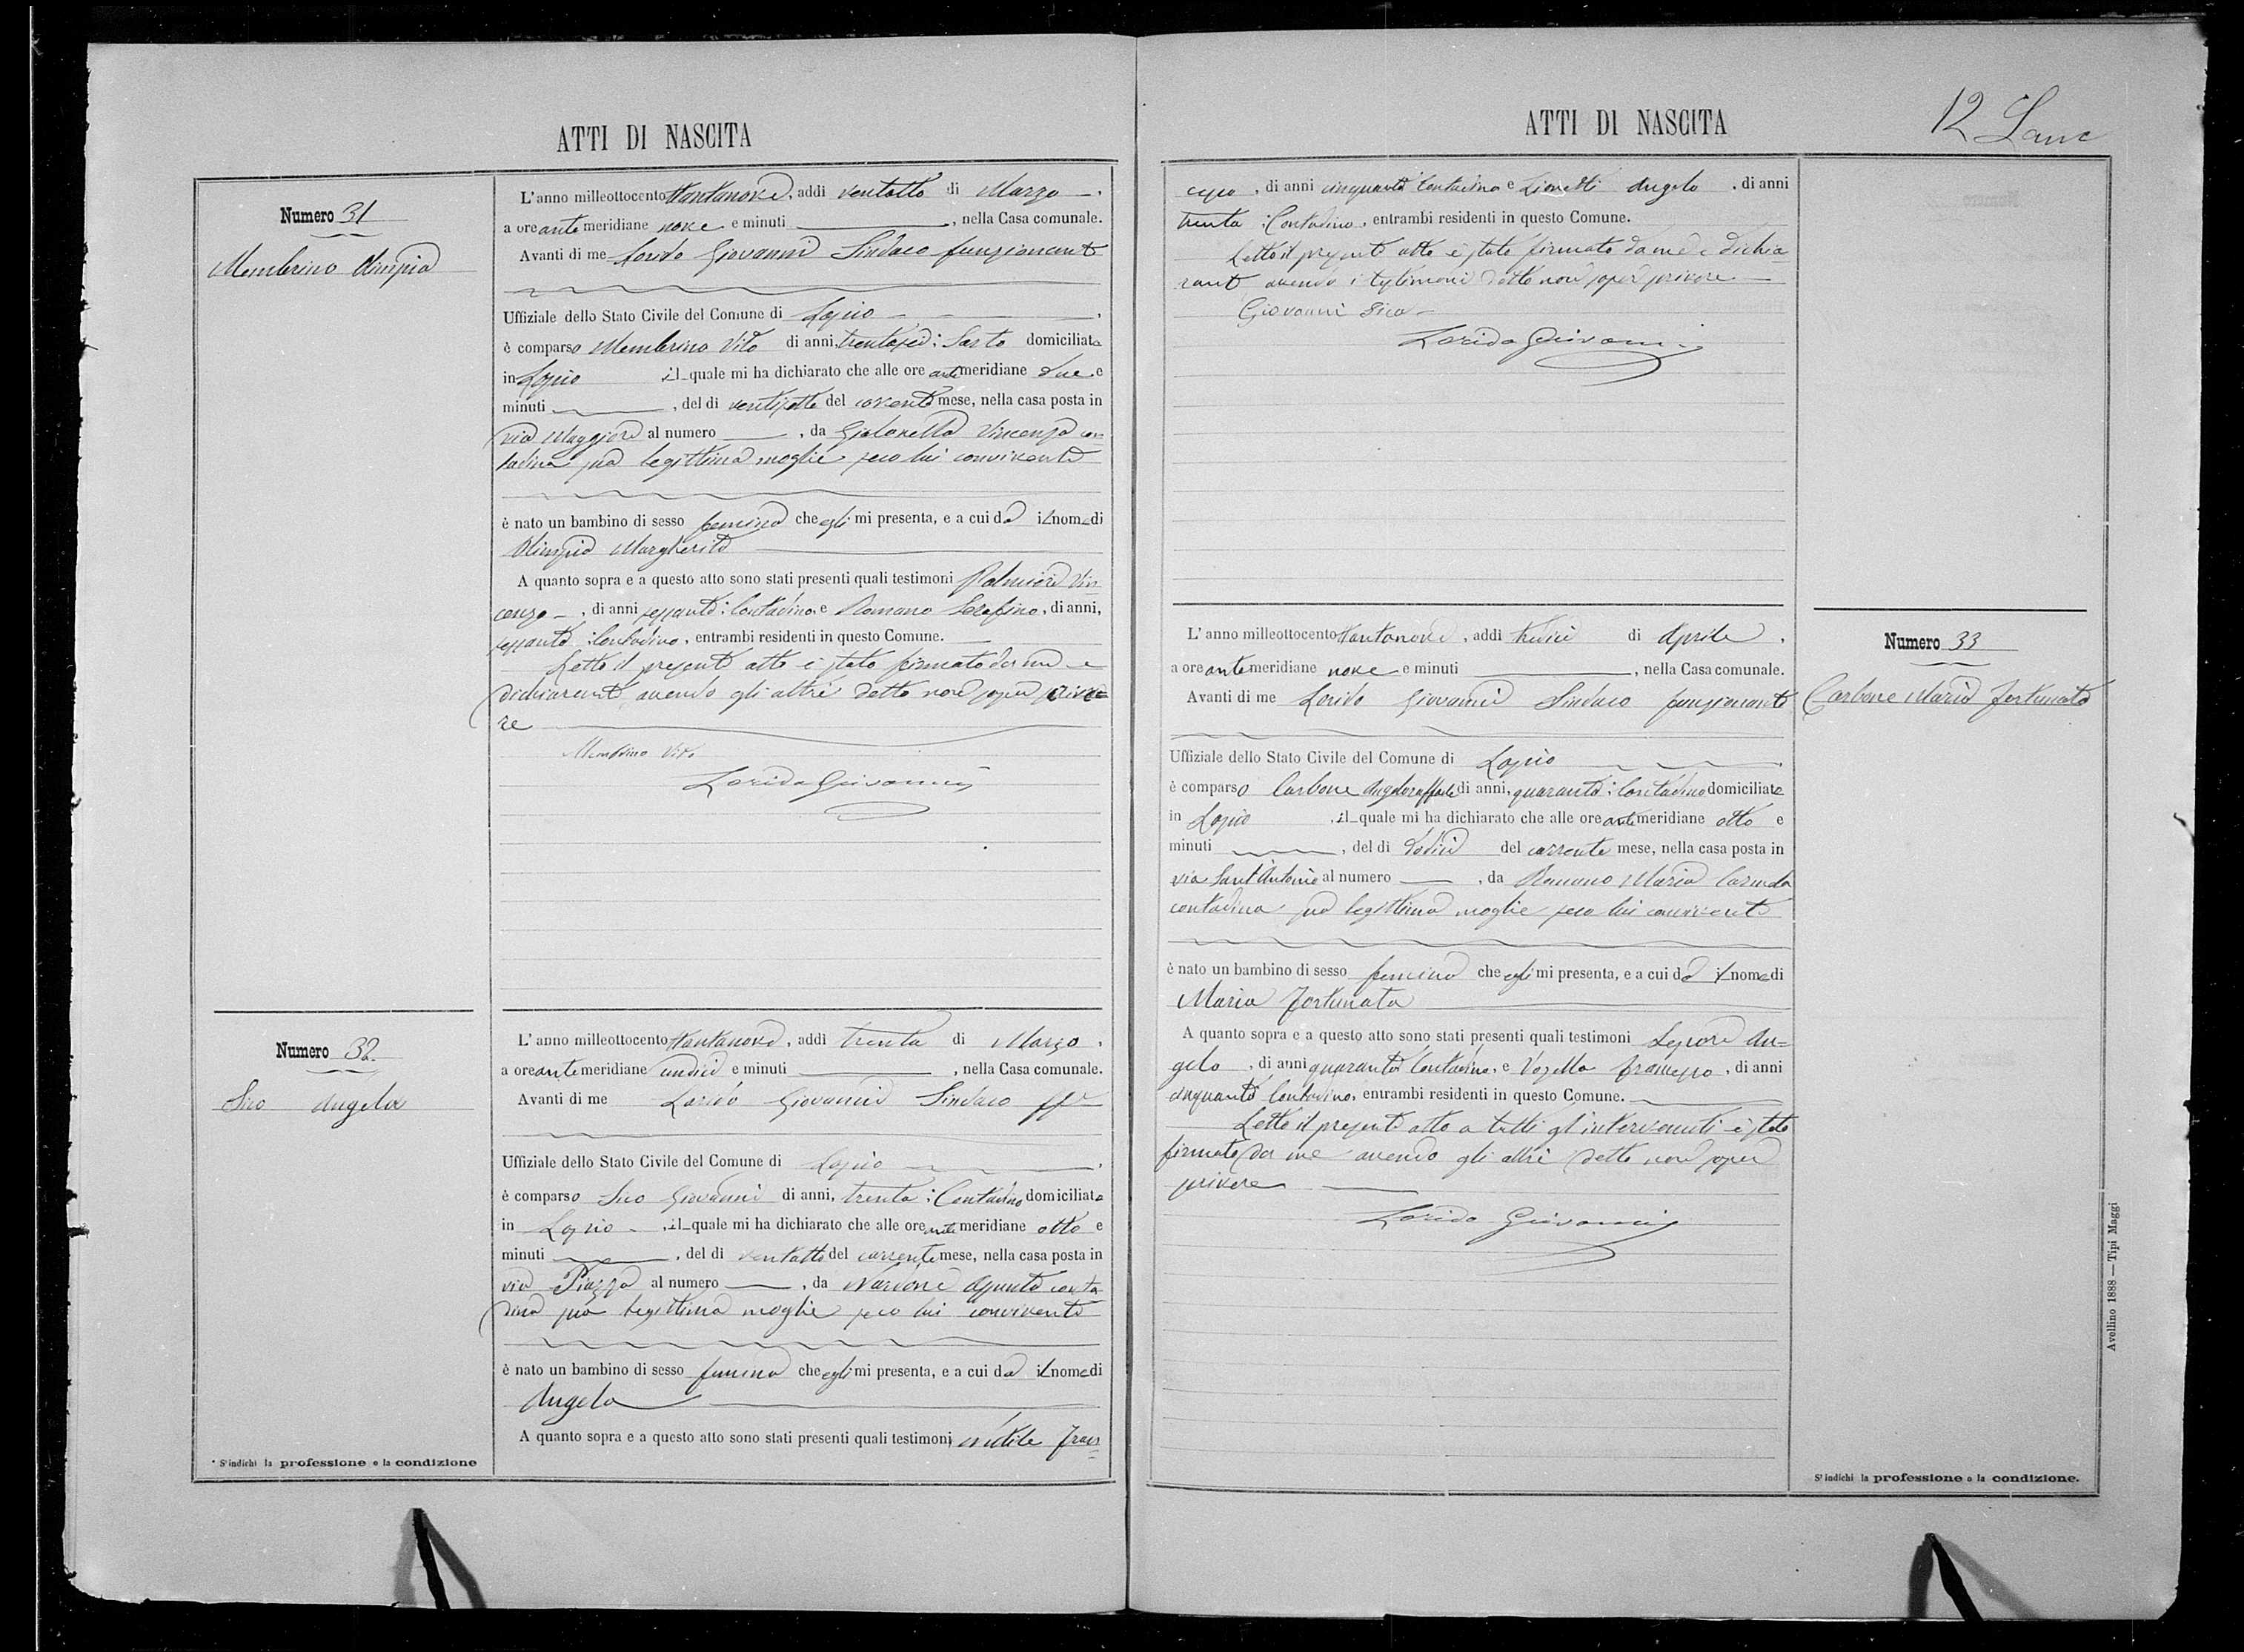 ATTI DI NASCITA
Numero 31
Membrino Olimpia
L'anno milleottocentottantanove, addi ventotto di Marzo,
a ore antemeridiane nove e minuti, nella Casa comunale.
Avanti di me Lorido Giovanni Sindaco funzionante
Uffiziale dello Stato Civile del Comune di Lapio.
è comparso Membrino Vito di anni, trentasei: Sarto domiciliato
in Lapio il quale mi ha dichiarato che alle ore antemeridiane due e
minuti, del di ventisette del corrente mese, nella casa posta in
via Maggiore al numero, da Vincenza con=
tadina sua legittima moglie seco lui convivente
è nato un bambino di sesso femina che egli mi presenta, e a cui dà il nome di
Olimpia Margherita
A quanto sopra e a questo atto sono stati presenti quali testimoni Palmieri Vin
cenzo, di anni sessanta: Contadino, e Romano Serafino, di anni,
sessanta: Contadino, entrambi residenti in questo Comune.
Letto il presente atto è stato firmato da me e
dichiarante avendo gli altri detto non saper scrive=
re
Membrino Vito
Lorido Giovanni
Numero 32.
Sico Angela
L'anno milleottocentottantanove, addi trenta di Marzo,
a ore antemeridiane undici e minuti, nella Casa comunale.
Avanti di me Lorido Giovanni Sindaco ff
Uffiziale dello Stato Civile del Comune di Lapio.
è comparso Sico Giovanni di anni, trenta: Contadino domiciliato
in Lapio, il quale mi ha dichiarato che alle ore antemeridiane otto e
minuti, del di ventotto del corrente mese, nella casa posta in
via Piazza al numero, da Assunta conta
dina sua legittima moglie seco lui convivente
è nato un bambino di sesso femina che egli mi presenta, e a cui dà il nome di
Angela
A quanto sopra e a questo atto sono stati presenti quali testimoni Fran
* S'indichi la professione o la condizione
ATTI DI NASCITA
12
cesco, di anni cinquanta Contadino e Lionetti Angelo, di anni
trenta: Contadino, entrambi residenti in questo Comune.
Letto il presente atto è stato firmato da me e dichia
rante avendo i testimoni detto non saper scrivere
Giovanni Sico
Lorido Giovanni
L'anno milleottocentottantanove, addi tredici di Aprile,
a ore antemeridiane nove e minuti, nella Casa comunale.
Avanti di me Lorido Giovanni Sindaco funzionante
Numero 33
Carbone Maria Fortunata
Uffiziale dello Stato Civile del Comune di Lapio.
è comparso Carbone Angeloraffaele di anni, quaranta: Contadino domiciliato
in Lapio, il quale mi ha dichiarato che alle ore antemeridiane otto e
minuti, del di dodici del corrente mese, nella casa posta in
via Sant'Antonio al numero, da Romano Maria Carmela
contadina sua legittima moglie seco lui convivente
è nato un bambino di sesso femina che egli mi presenta, e a cui dà il nome di
Maria Fortunata
A quanto sopra e a questo atto sono stati presenti quali testimoni Lepore An=
gelo, di anni quaranta Contadino, e Vozella Francesco, di anni
cinquanta Contadino, entrambi residenti in questo Comune.
Letto il presente atto a tutti gl'intervenuti è stato
firmato da me avendo gli altri detto non saper
scrivere
Lorido Giovanni
Avellino 1888 — Tipi Maggi
S'indichi la professione o la condizione.